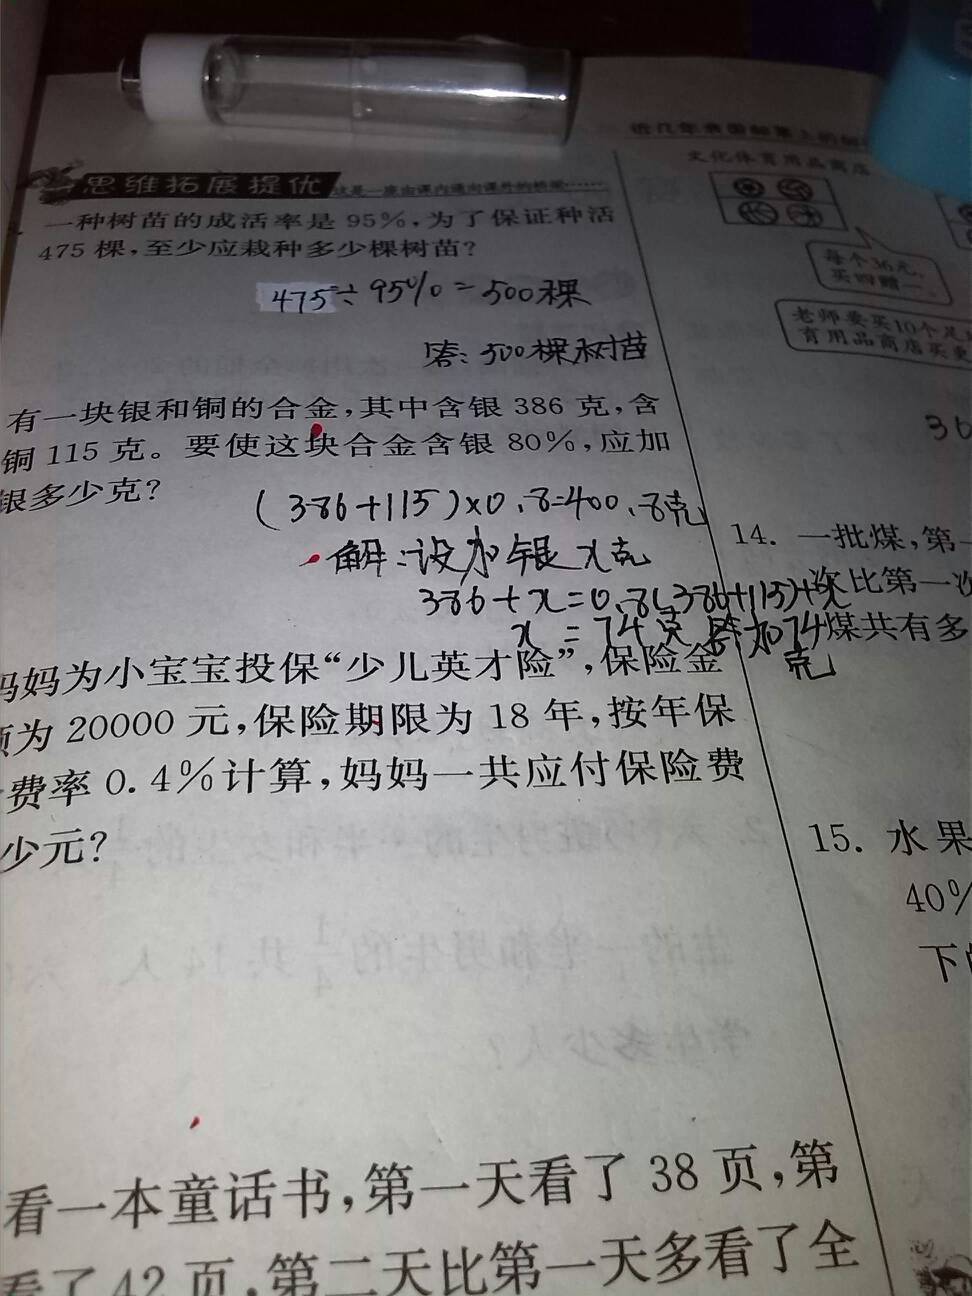 思维拓展提优 这是一座由课内通向课外的桥梁……
一种树苗的成活率是 95%,为了保证种活
475 棵,至少应栽种多少棵树苗?
475÷95%=500棵
答:500棵树苗
有一块银和铜的合金,其中含银 386 克,含
铜 115 克。要使这块合金含银 80%,应加
银多少克?
(386+115)×0.8=400.8克
解:设加银x克
386+x=0.8(386+115)+x
x=74克 答:加74
克
妈妈为小宝宝投保“少儿英才险”,保险金
额为 20000 元,保险期限为 18 年,按年保
费率 0.4%计算,妈妈一共应付保险费
少元?
看一本童话书,第一天看了 38 页,第
看了 42 页,第二天比第一天多看了全
文化体育用品商店
每个36元,
买四赠一。
老师要买10个足
育用品商店买
36
14. 一批煤,第一
次比第一次
煤共有多
15. 水果
40%
下的